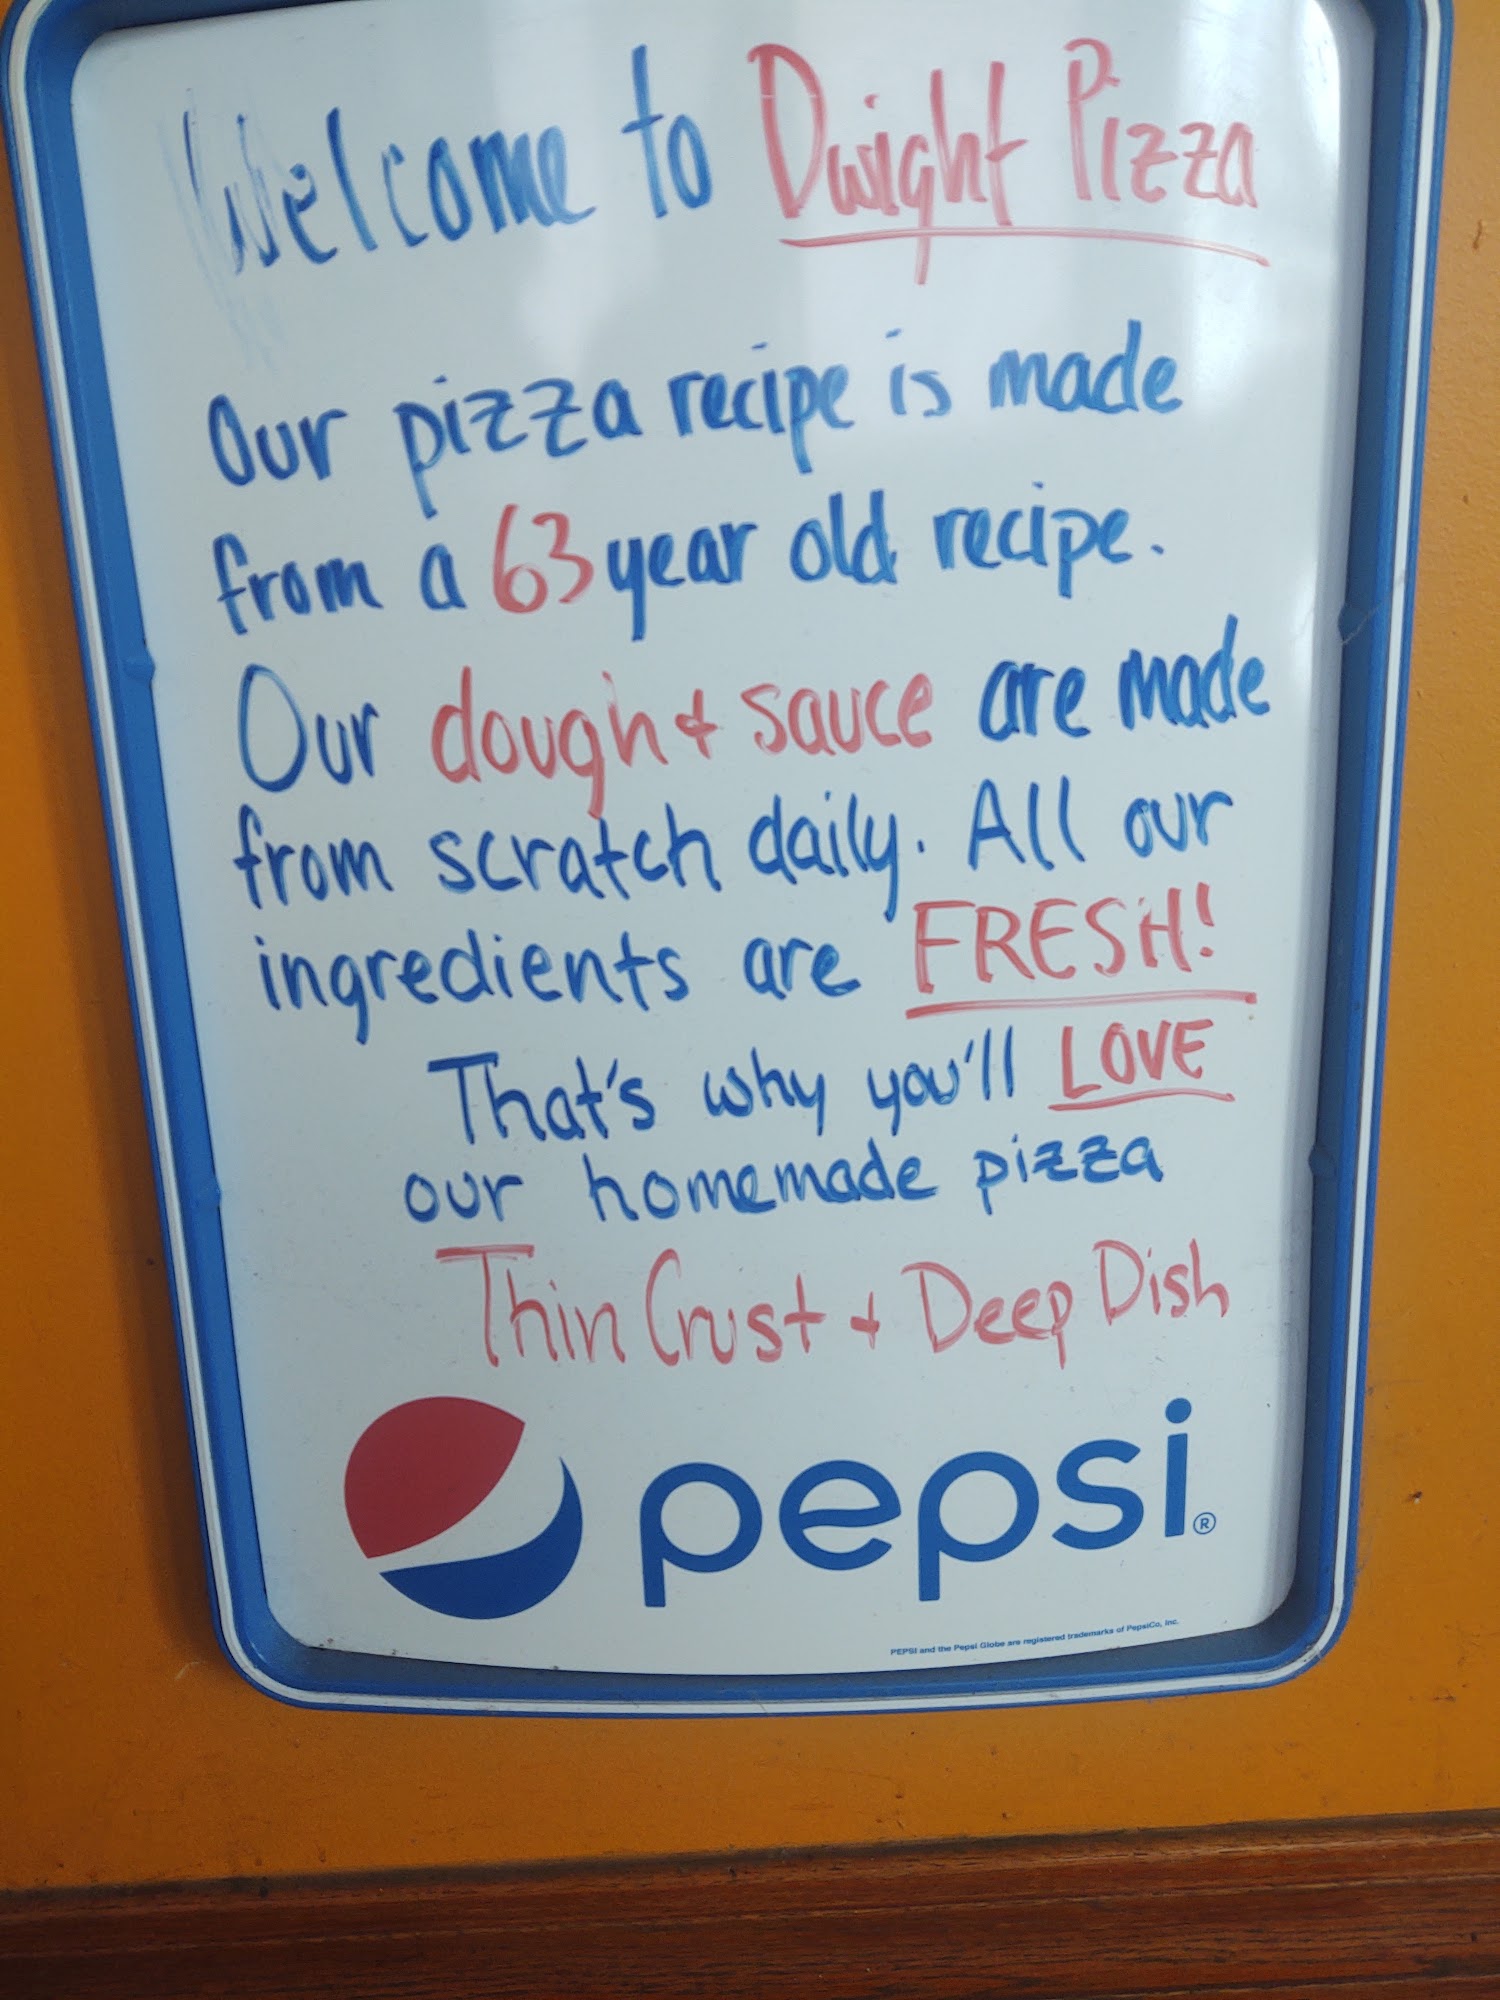 Welcome to Dwight Pizza
Our pizza recipe is made
from a 63 year old recipe.
Our dough + sauce are made
from scratch daily. All our
ingredients are FRESH!
That's why you'll LOVE
our homemade pizza
Thin Crust + Deep Dish
pepsi®
PEPSI and the Pepsi Globe are registered trademarks of PepsiCo, Inc.